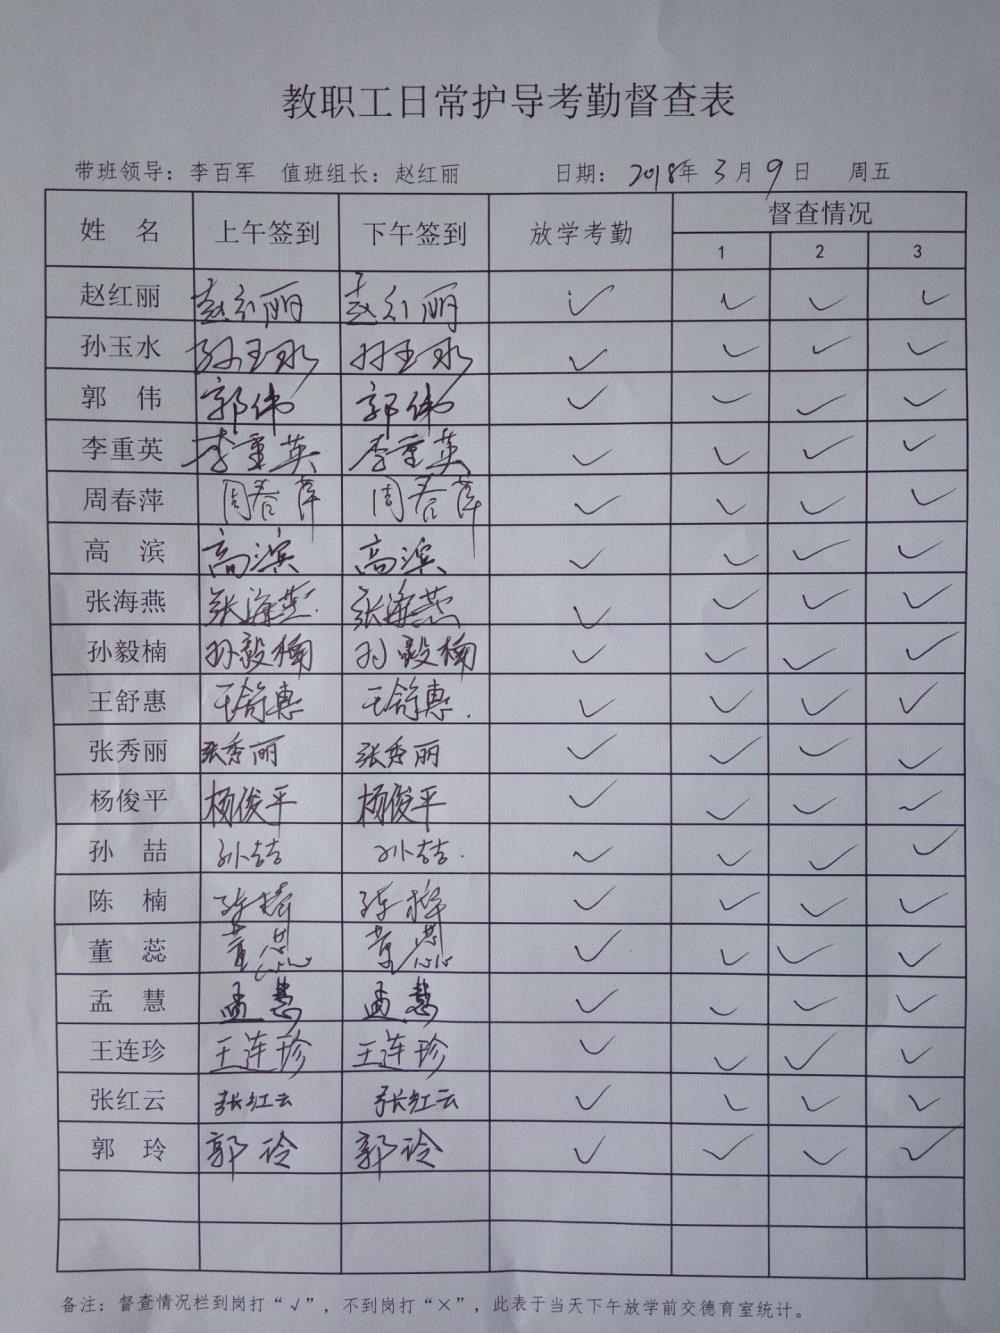 教职工日常护导考勤督查表
带班领导：李百军 值班组长：赵红丽 日期：2018年3月9日 周五
姓 名 上午签到 下午签到 放学考勤 督查情况
1 2 3
赵红丽 赵红丽 赵红丽 ✓ ✓ ✓ ✓
孙玉水 孙玉水 孙玉水 ✓ ✓ ✓ ✓
郭 伟 郭伟 郭伟 ✓ ✓ ✓ ✓
李重英 李重英 李重英 ✓ ✓ ✓ ✓
周春萍 周春萍 周春萍 ✓ ✓ ✓ ✓
高 滨 高滨 高滨 ✓ ✓ ✓ ✓
张海燕 张海燕 张海燕 ✓ ✓ ✓ ✓
孙毅楠 孙毅楠 孙毅楠 ✓ ✓ ✓ ✓
王舒惠 王舒惠 王舒惠 ✓ ✓ ✓ ✓
张秀丽 张秀丽 张秀丽 ✓ ✓ ✓ ✓
杨俊平 杨俊平 杨俊平 ✓ ✓ ✓ ✓
孙 喆 孙喆 孙喆 ✓ ✓ ✓ ✓
陈 楠 陈楠 陈楠 ✓ ✓ ✓ ✓
董 蕊 董蕊 董蕊 ✓ ✓ ✓ ✓
孟 慧 孟慧 孟慧 ✓ ✓ ✓ ✓
王连珍 王连珍 王连珍 ✓ ✓ ✓ ✓
张红云 张红云 张红云 ✓ ✓ ✓ ✓
郭 玲 郭玲 郭玲 ✓ ✓ ✓ ✓
备注：督查情况栏到岗打“√”，不到岗打“×”，此表于当天下午放学前交德育室统计。